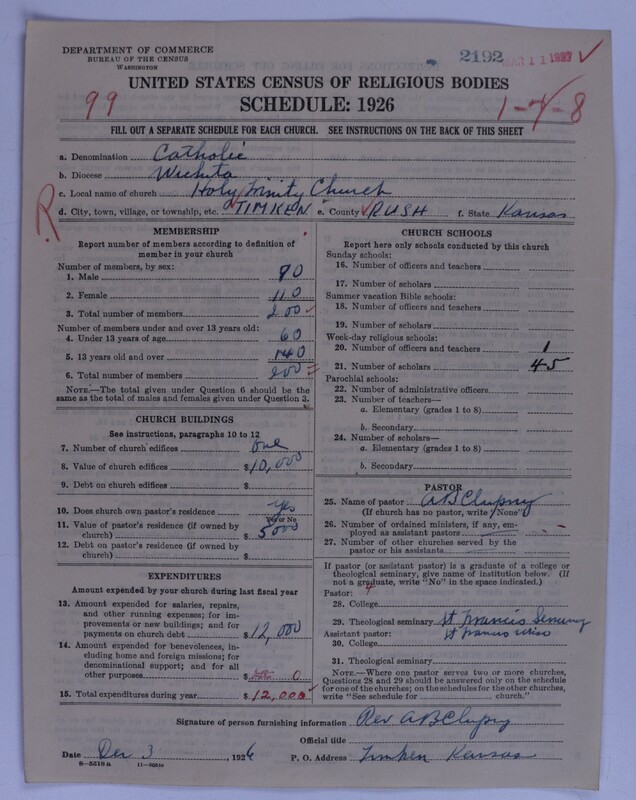 DEPARTMENT OF COMMERCE
BUREAU OF THE CENSUS
WASHINGTON
2192 MAR 11 1927
UNITED STATES CENSUS OF RELIGIOUS BODIES
99 SCHEDULE: 1926 1-4-8
FILL OUT A SEPARATE SCHEDULE FOR EACH CHURCH. SEE INSTRUCTIONS ON THE BACK OF THIS SHEET
a. Denomination Catholic
b. Diocese Wichita
c. Local name of church Holy Trinity Church
R d. City, town, village, or township, etc. TIMKEN e. County RUSH f. State Kansas
MEMBERSHIP
Report number of members according to definition of
member in your church
Number of members, by sex:
1. Male 90
2. Female 110
3. Total number of members 200
Number of members under and over 13 years old:
4. Under 13 years of age 60
5. 13 years old and over 140
6. Total number of members 200
NOTE.—The total given under Question 6 should be the
same as the total of males and females given under Question 3.
CHURCH BUILDINGS
See instructions, paragraphs 10 to 12
7. Number of church edifices One
8. Value of church edifices $10,000
9. Debt on church edifices $
10. Does church own pastor's residence Yes
Yes or No
11. Value of pastor's residence (if owned by
church) $ 5000
12. Debt on pastor's residence (if owned by
church) $
EXPENDITURES
Amount expended by your church during last fiscal year
13. Amount expended for salaries, repairs,
and other running expenses; for im-
provements or new buildings; and for
payments on church debt $12,000
14. Amount expended for benevolences, in-
cluding home and foreign missions; for
denominational support; and for all
other purposes $ 0
15. Total expenditures during year $12,000
CHURCH SCHOOLS
Report here only schools conducted by this church
Sunday schools:
16. Number of officers and teachers
17. Number of scholars
Summer vacation Bible schools:
18. Number of officers and teachers
19. Number of scholars
Week-day religious schools:
20. Number of officers and teachers 1
21. Number of scholars 45
Parochial schools:
22. Number of administrative officers
23. Number of teachers—
a. Elementary (grades 1 to 8)
b. Secondary
24. Number of scholars—
a. Elementary (grades 1 to 8)
b. Secondary
PASTOR
25. Name of pastor AB
(If church has no pastor, write "None")
26. Number of ordained ministers, if any, em-
ployed as assistant pastors
27. Number of other churches served by the
pastor or his assistants
If pastor (or assistant pastor) is a graduate of a college or
theological seminary, give name of institution below. (If
not a graduate, write "No" in the space indicated.)
Pastor:
28. College
29. Theological seminary St Francis Seminary
Assistant pastor: St Francis
30. College
31. Theological seminary
NOTE.—Where one pastor serves two or more churches,
Questions 28 and 29 should be answered only on the schedule
for one of the churches; on the schedules for the other churches,
write "See schedule for church."
Signature of person furnishing information Rev AB
Official title
Date Dec 3, 1926 P. O. Address Timken Kansas
8-5518a